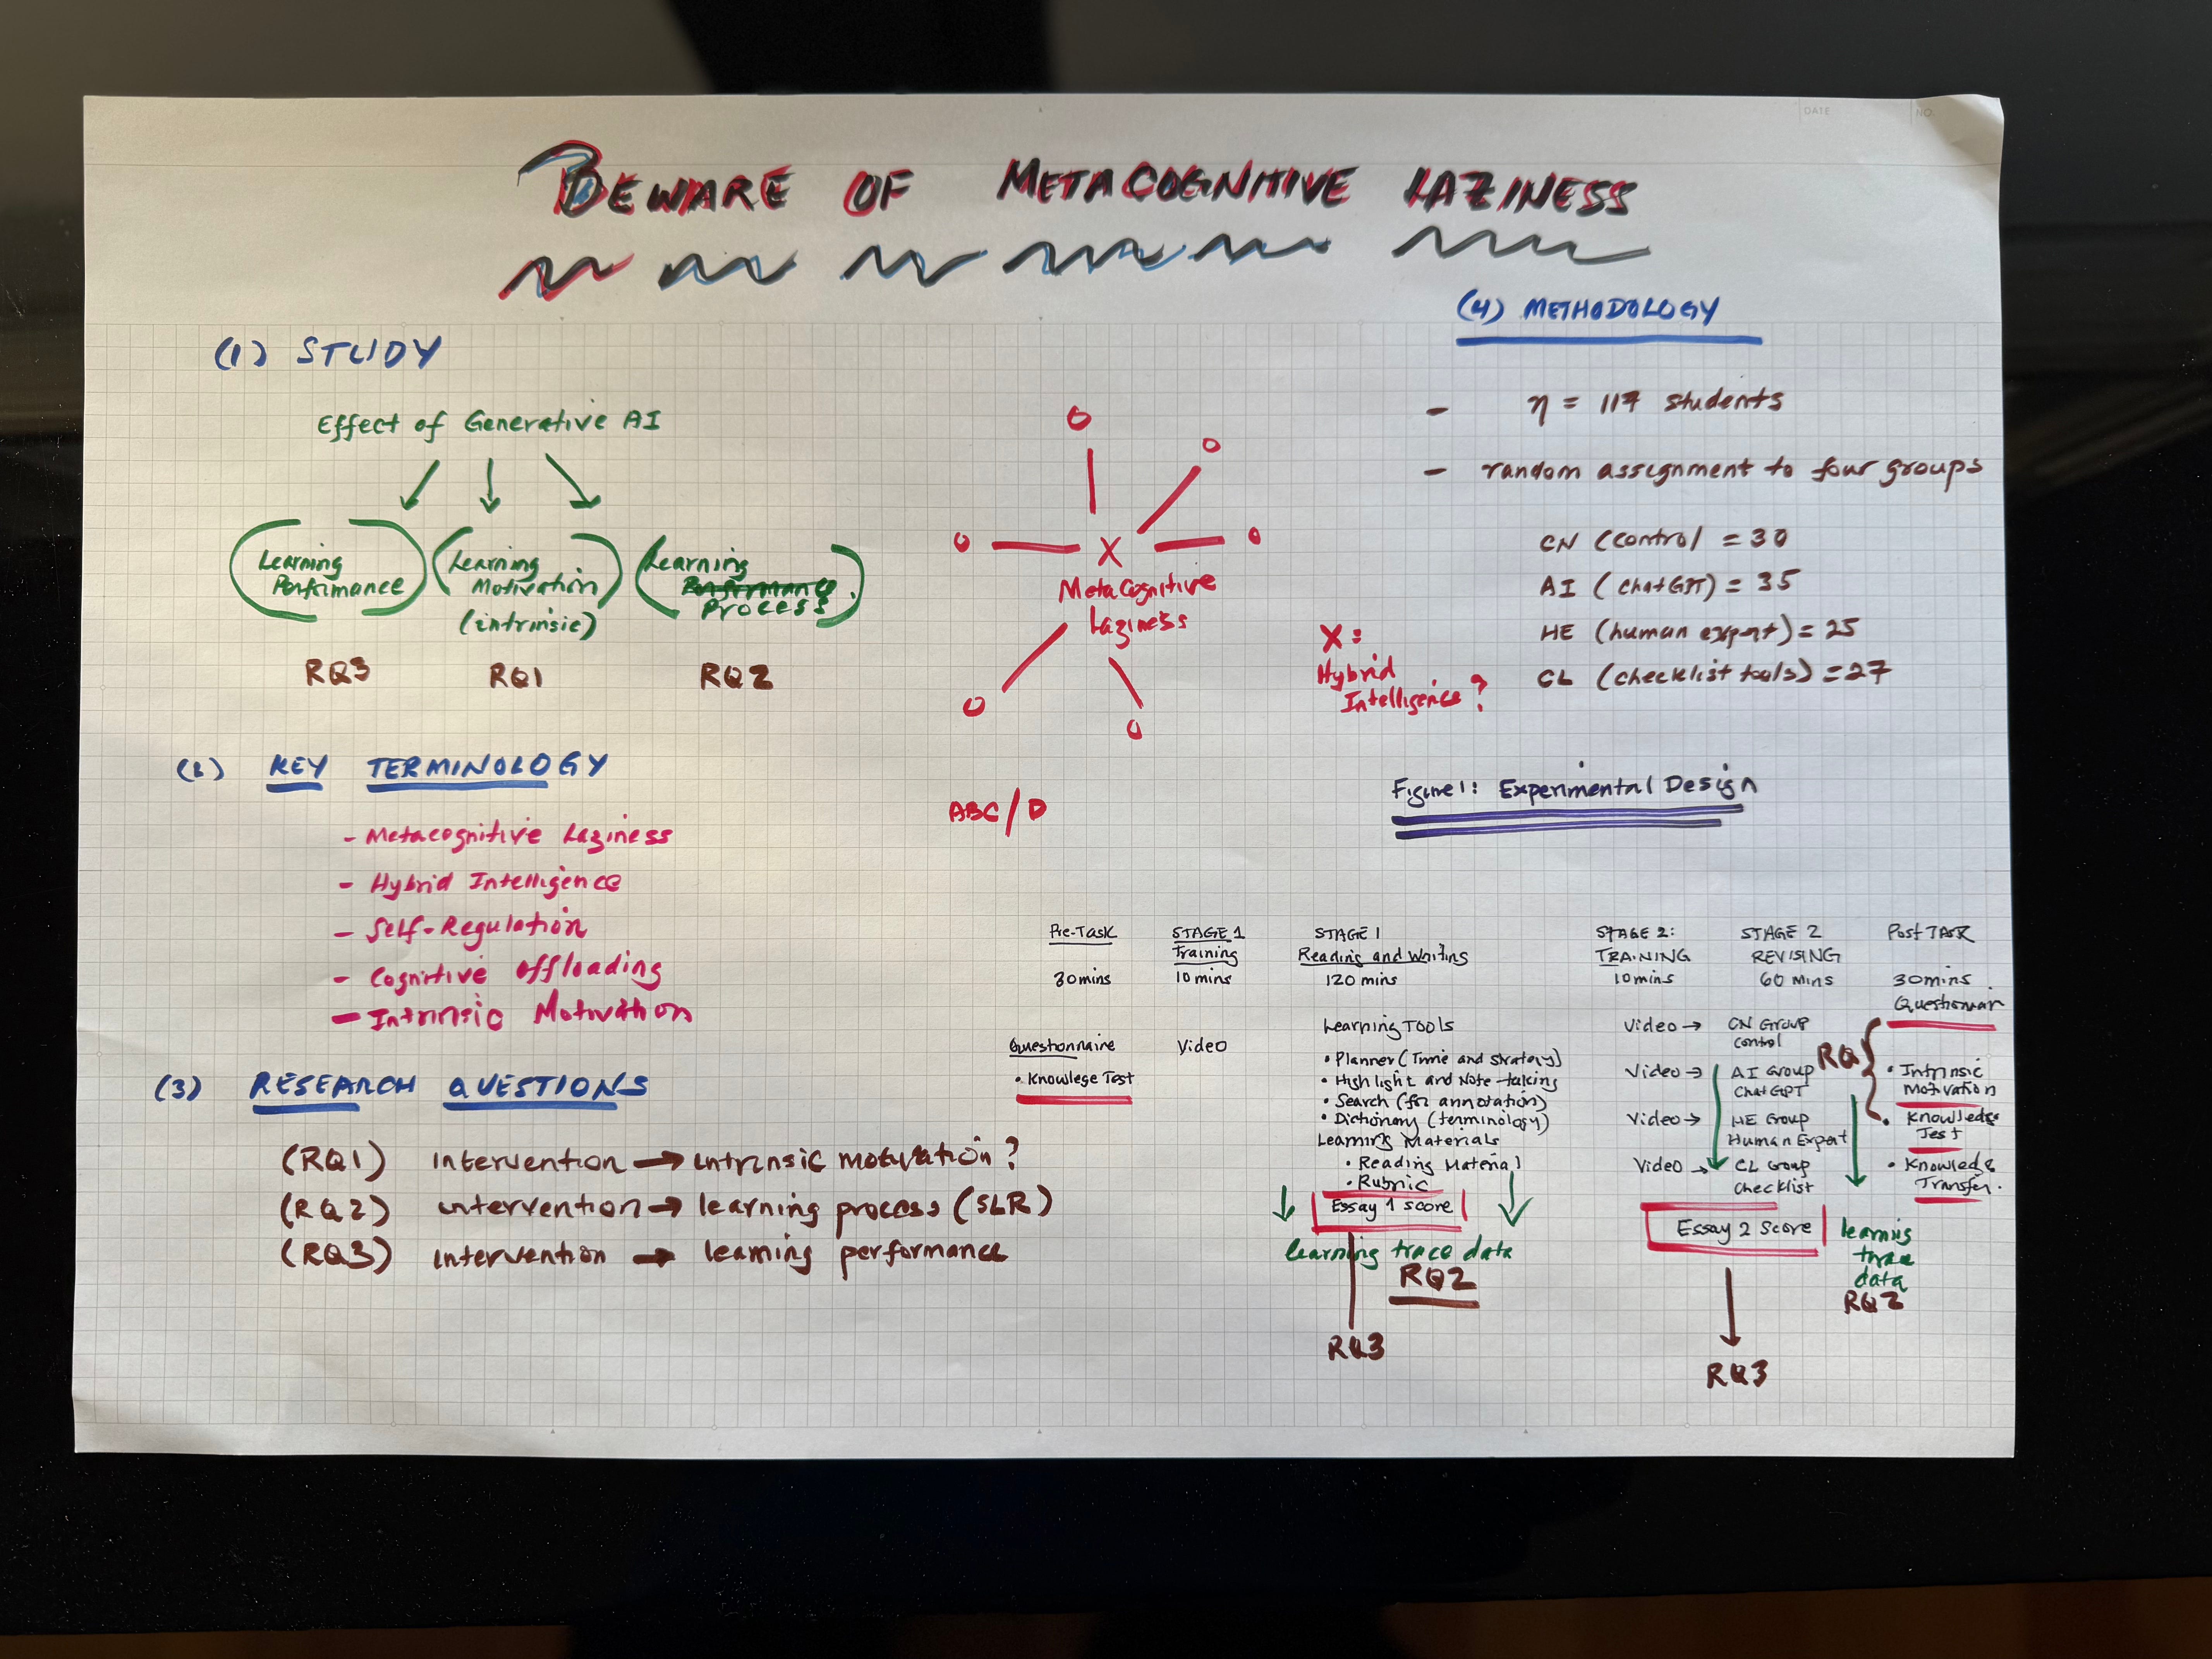 DATE
NO.
BEWARE OF METACOGNITIVE LAZINESS
(1) STUDY
Effect of Generative AI
Learning
Performance
Learning
Motivation
(intrinsic)
Learning
Performance
Process
RQ3
RQ1
RQ2
(2) KEY TERMINOLOGY
- Metacognitive Laziness
- Hybrid Intelligence
- Self-Regulation
- Cognitive Offloading
- Intrinsic Motivation
(3) RESEARCH QUESTIONS
(RQ1) Intervention → intrinsic motivation?
(RQ2) intervention → learning process (SLR)
(RQ3) Intervention → learning performance
O
O
O
O
O
O
X
MetaCognitive
Laziness
X =
Hybrid
Intelligence?
ABC/D
(4) METHODOLOGY
- η = 117 students
- random assignment to four groups
CN (control = 30
AI (ChatGPT) = 35
HE (human expert) = 25
CL (checklist tools) = 27
Figure 1: Experimental Design
Pre-Task
30mins
Questionnaire
• Knowlege Test
STAGE 1
Training
10 mins
Video
STAGE 1
Reading and Writing
120 mins
Learning Tools
• Planner (Time and strategy)
• Highlight and Note-taking
• Search (for annotation)
• Dictionary (terminology)
Learning Materials
• Reading Material
• Rubric
Essay 1 score
learning trace data
RQ2
RQ3
STAGE 2:
TRAINING
10mins
STAGE 2
REVISING
60 mins
Video → CN Group
Control
Video → AI Group
ChatGPT
Video → HE Group
Human Expert
Video → CL Group
Checklist
Essay 2 Score
RQ3
Post TASK
30mins
Questionnair
RQ
• Intrinsic
Motivation
• Knowledge
Test
• Knowledge
Transfer.
learning
trace
data
RQ2